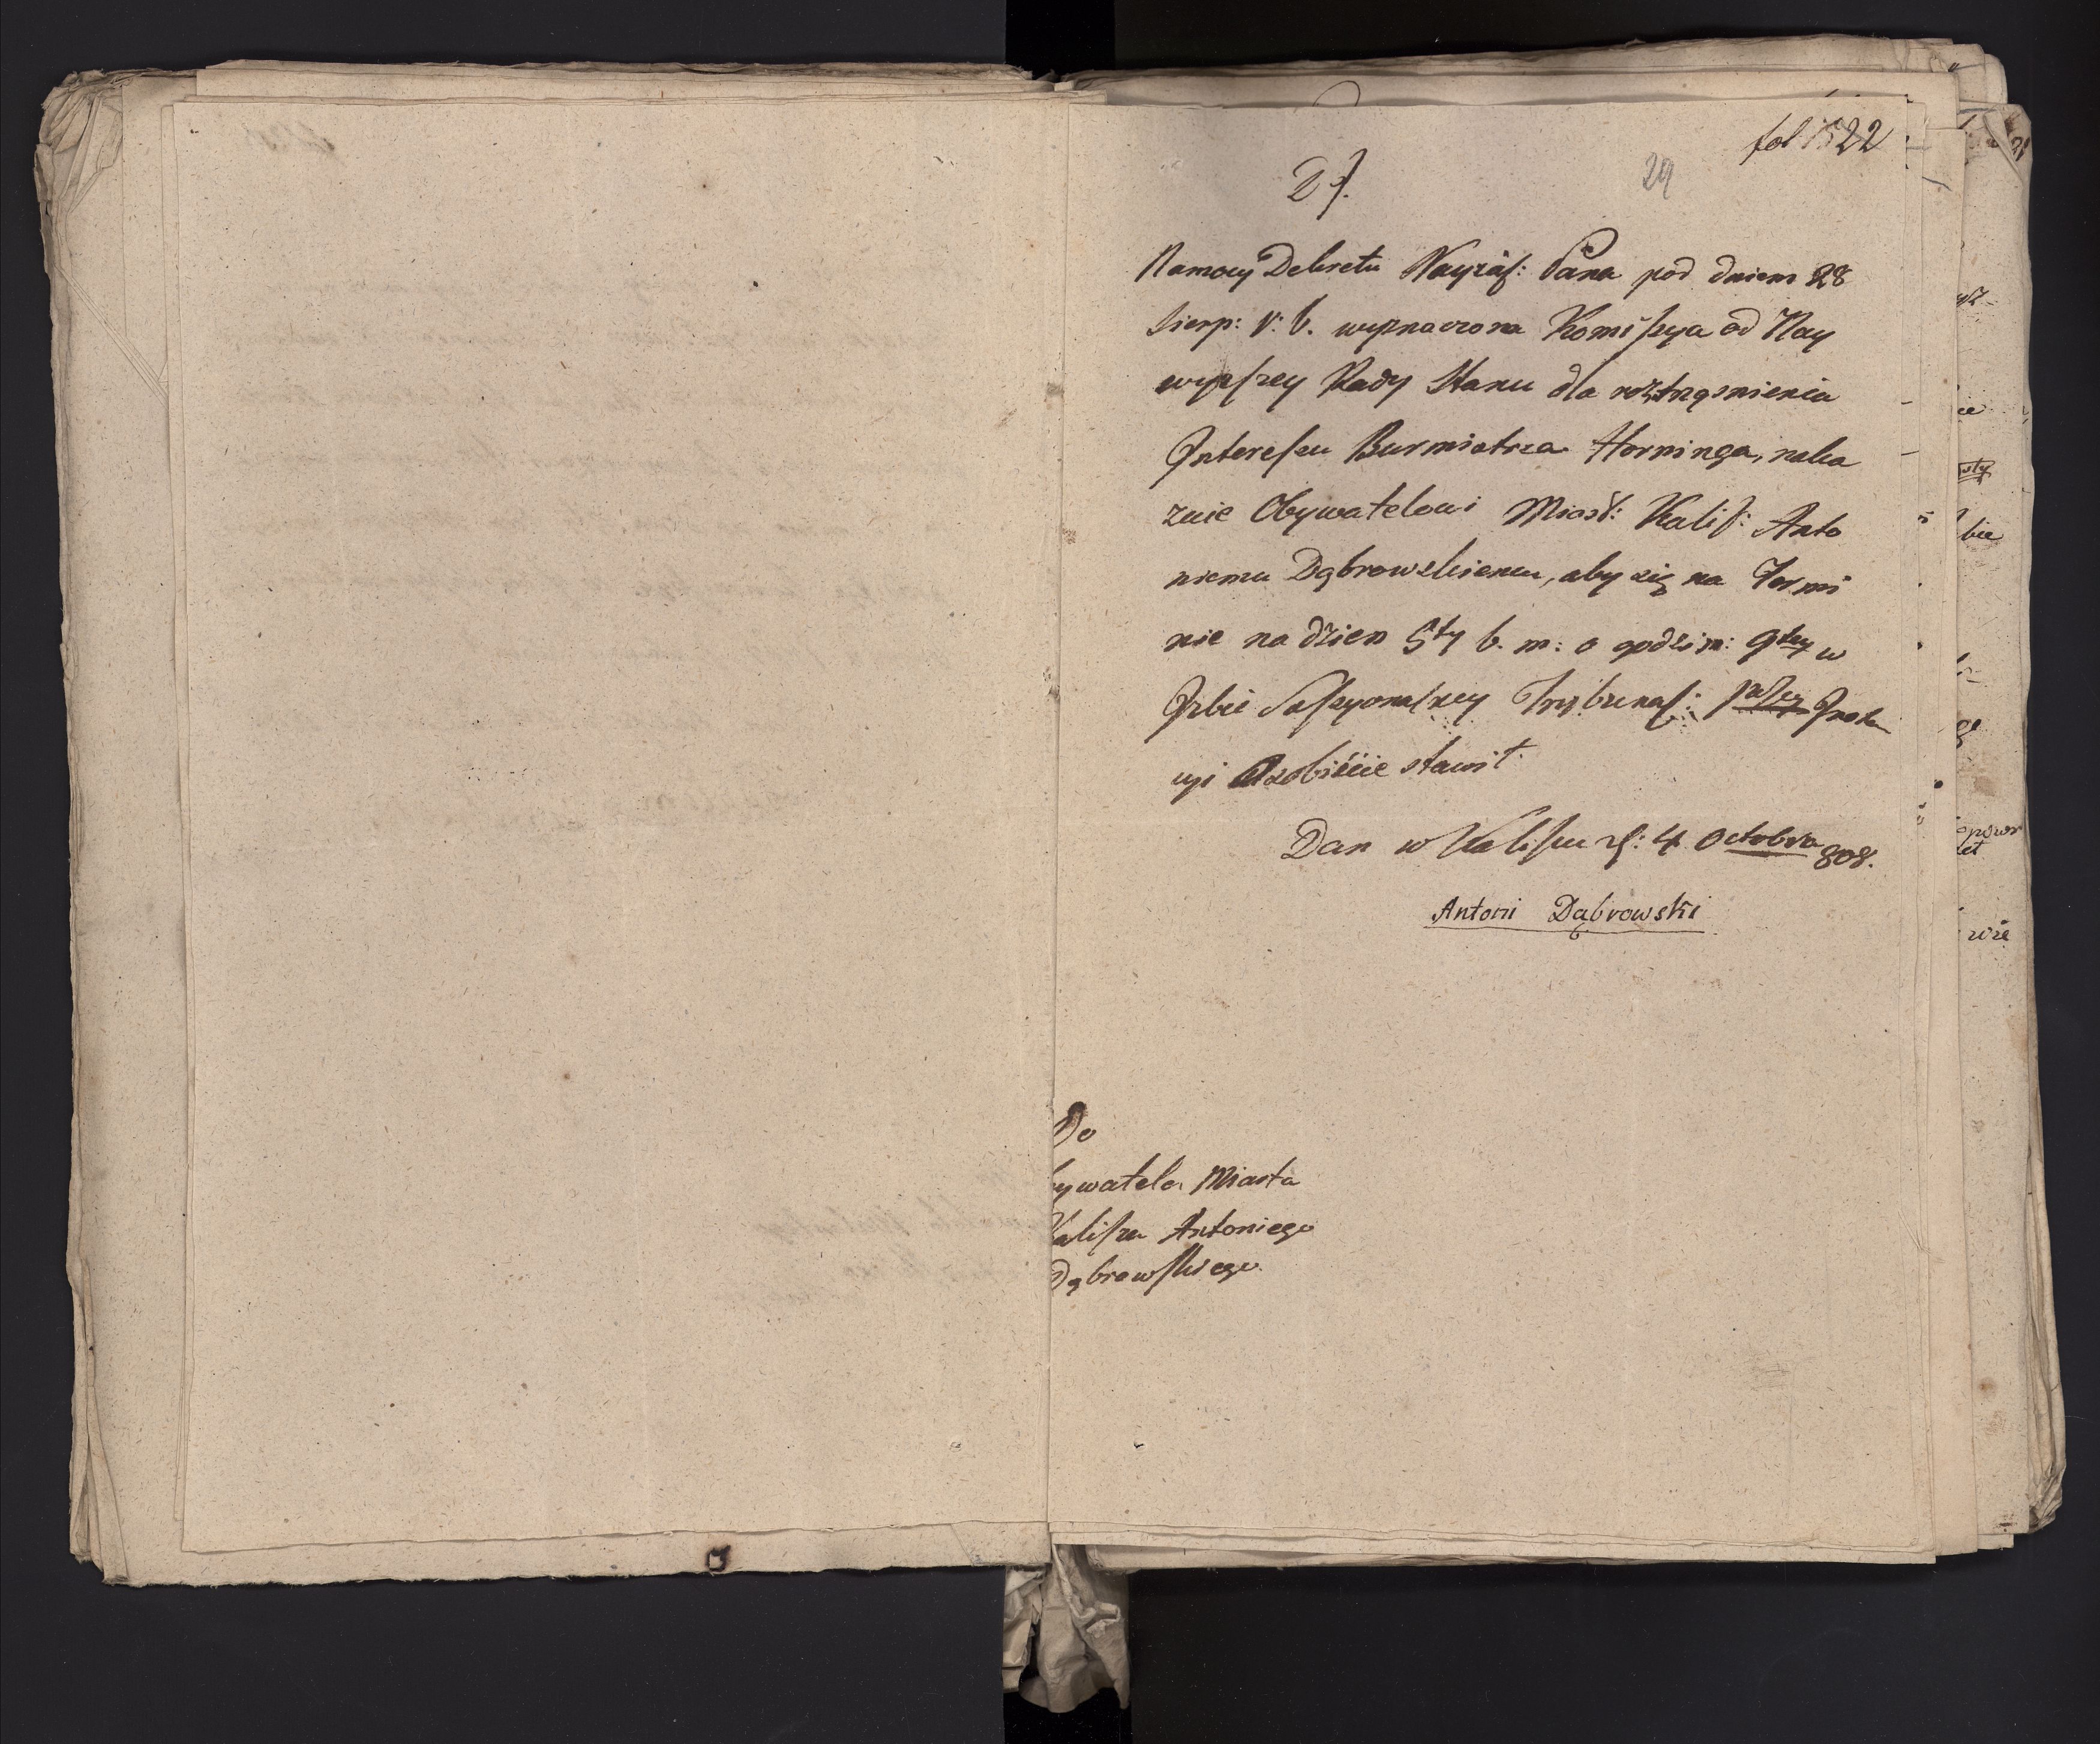 fol 22
29
2).
Namocy Dekretu Nayiaś: Pana pod dniem 28
Sierp: r: b. wyznaczona Komiſsya od Nay
wyzſzey Rady Stanu dla roztrząsnienia
Intereſsu Burmistrza Horninga, naka
zuie Obywatelowi Miast: Kaliſ: Anto
niemu Dąbrowskiemu, aby się na Termi
nie na dzien 5ty b. m: o godzin: 9tey w
Izbie Seſsyonalney Trybunal:
osobiście stawił.
Dan w Kaliſzu d: 4 Octobra 808.
Antoni Dąbrowski
Do
bywatela Miasta
Kaliſza Antoniego
Dąbrowſkiego